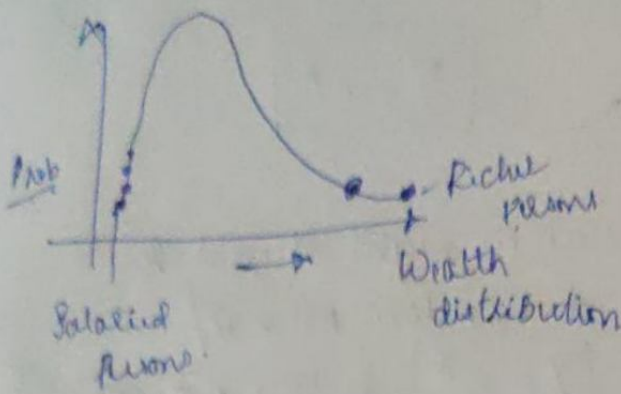 Prob
Richer
persons
Wealth
distribution
Salaried
persons.